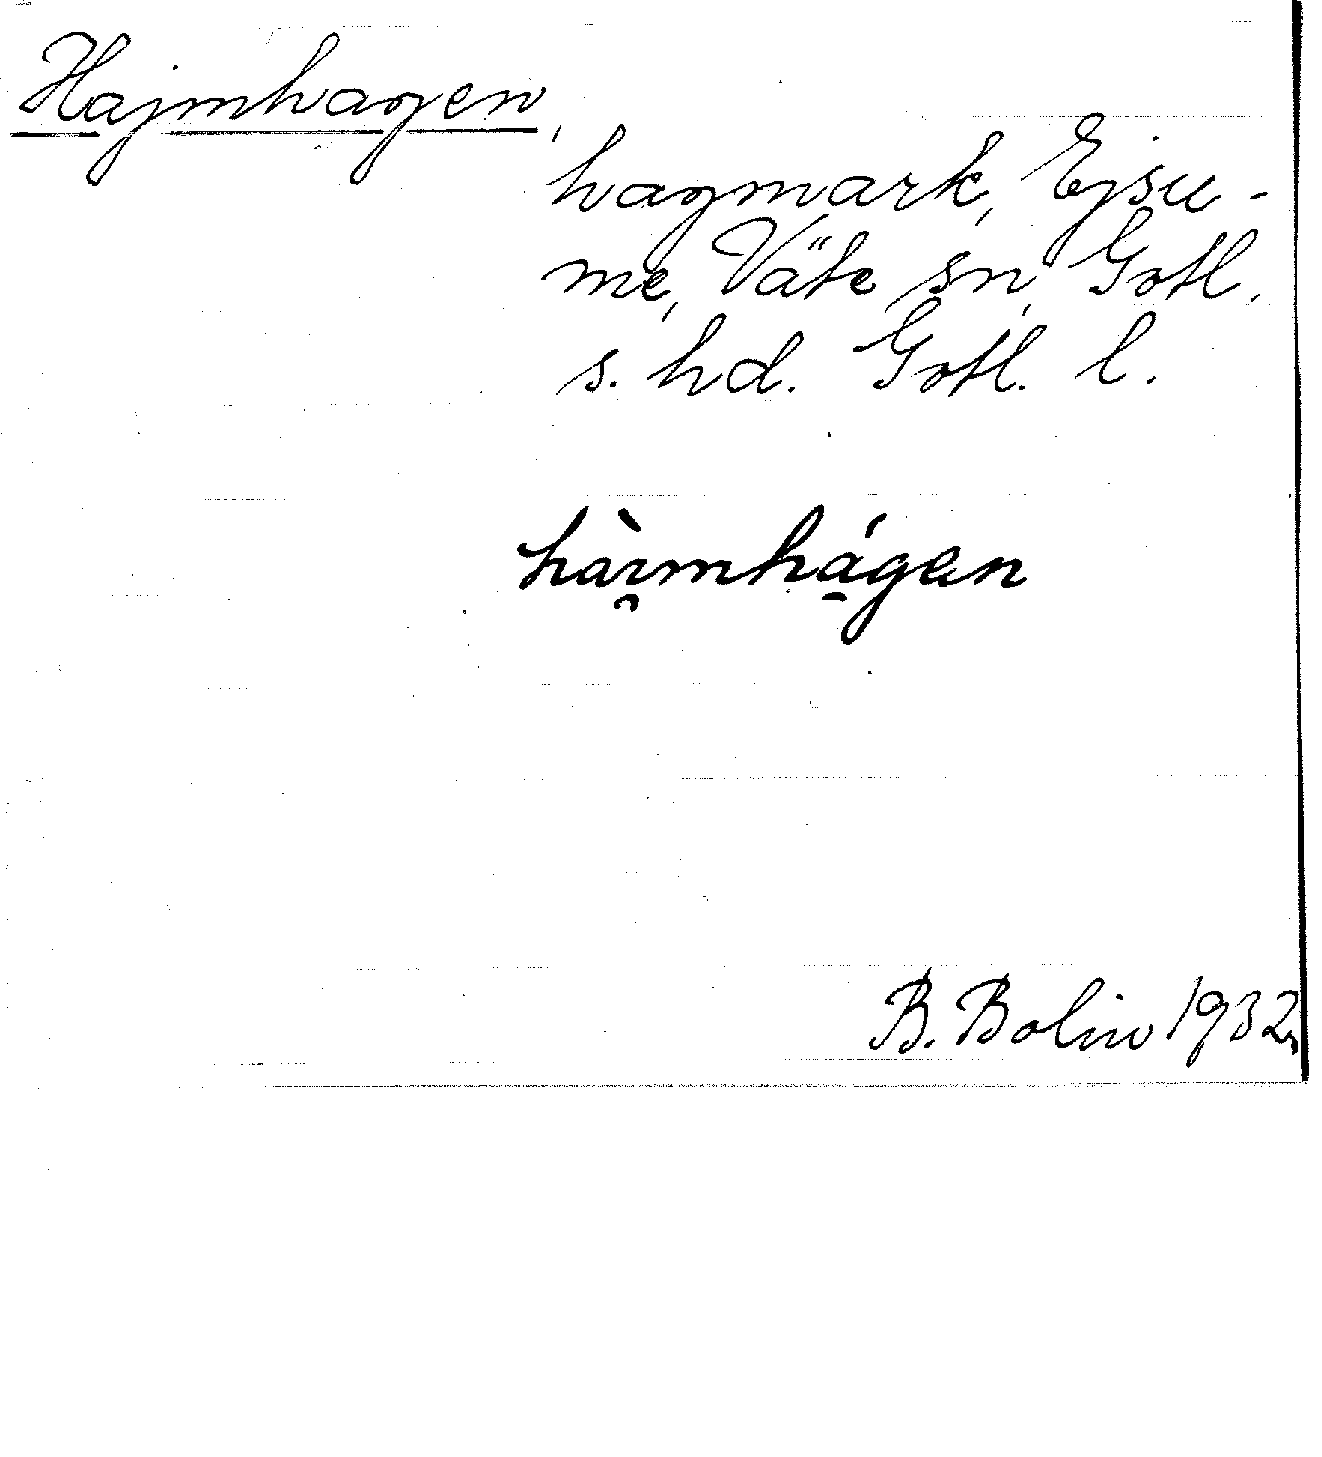 Hajmhagen,
hagmark, Ejsu-
me, Väte sn, Gotl.
s. hd. Gotl. l.
hàı̯mhá̱gan
B. Bolin 1932